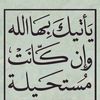 يأتيك بها الله
وإن كانت
مستحيلة